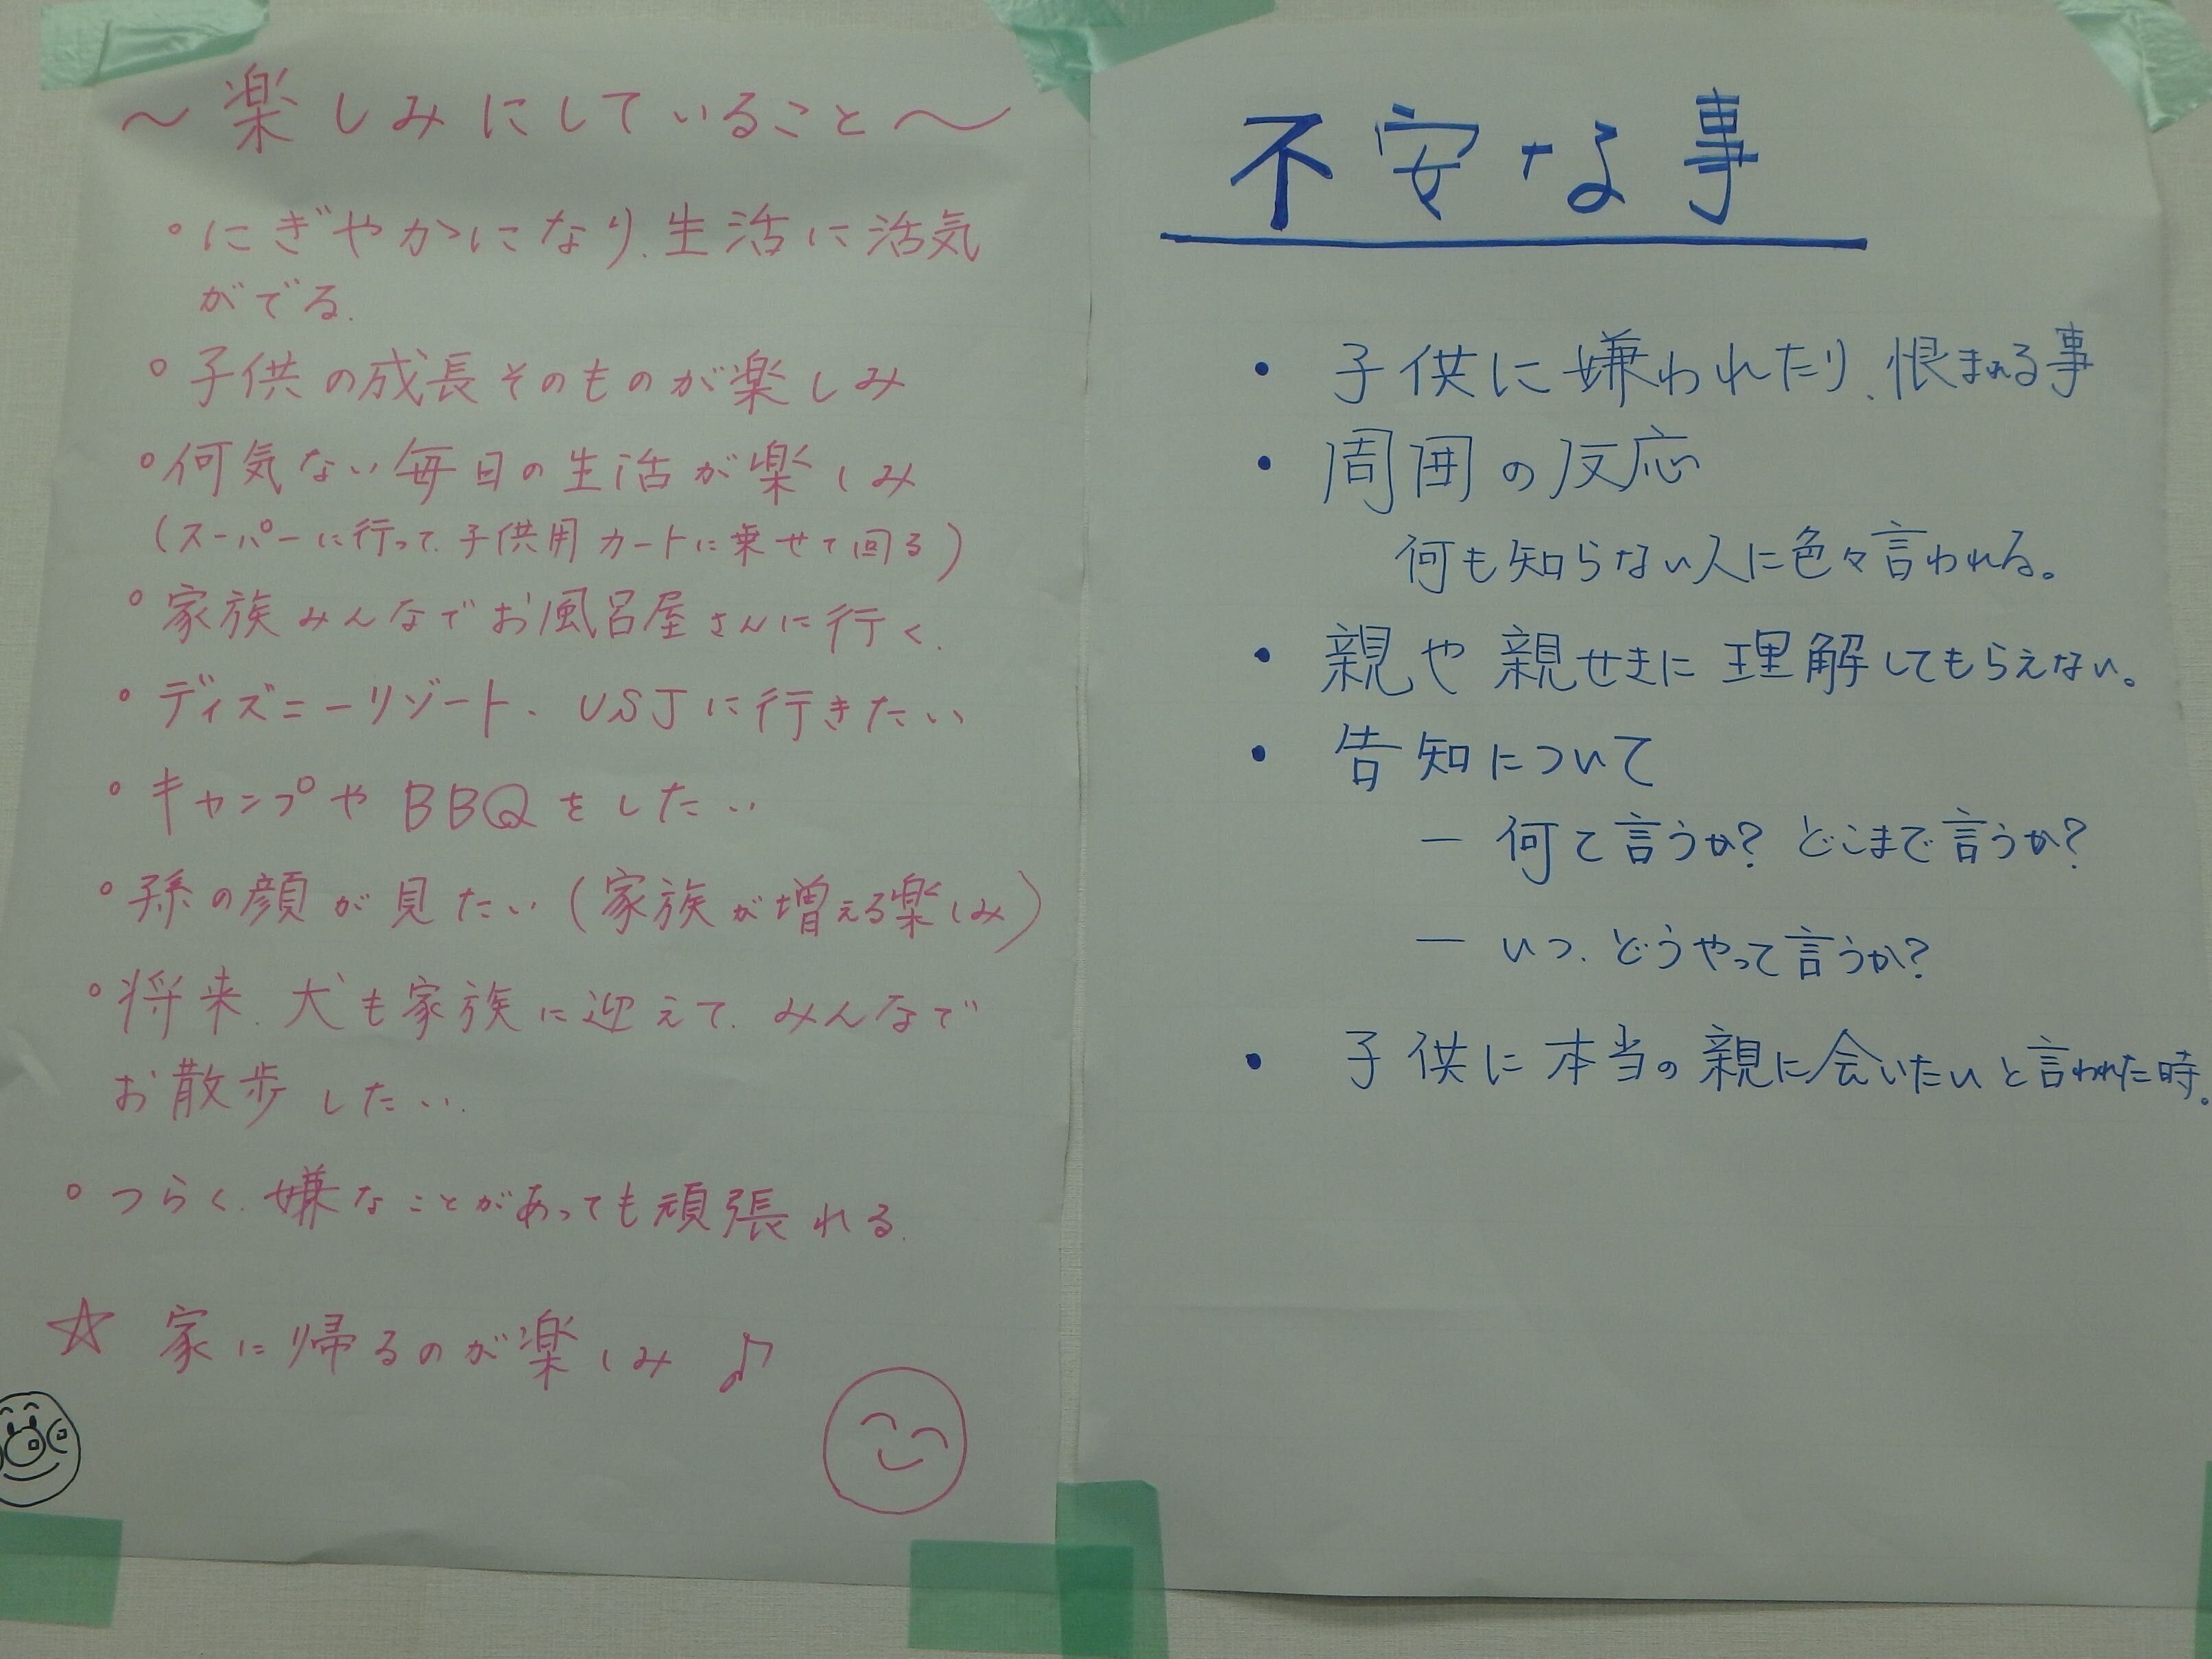 〜楽しみにしていること〜
。にぎやかになり、生活に活気
がでる。
。子供の成長そのものが楽しみ
。何気ない毎日の生活が楽しみ
(スーパーに行って、子供用カートに乗せて回る)
。家族みんなでお風呂屋さんに行く。
。ディズニーリゾート、USJに行きたい
。キャンプやBBQをしたい
。孫の顔が見たい(家族が増える楽しみ)
。将来、犬も家族に迎えて、みんなで
お散歩したい。
。つらく、嫌なことがあっても頑張れる。
☆ 家に帰るのが楽しみ♪
不安な事
・子供に嫌われたり、恨まれる事
・周囲の反応
何も知らない人に色々言われる。
・親や親せきに理解してもらえない。
・告知について
― 何て言うか? どこまで言うか?
― いつ、どうやって言うか?
・子供に本当の親に会いたいと言われた時。